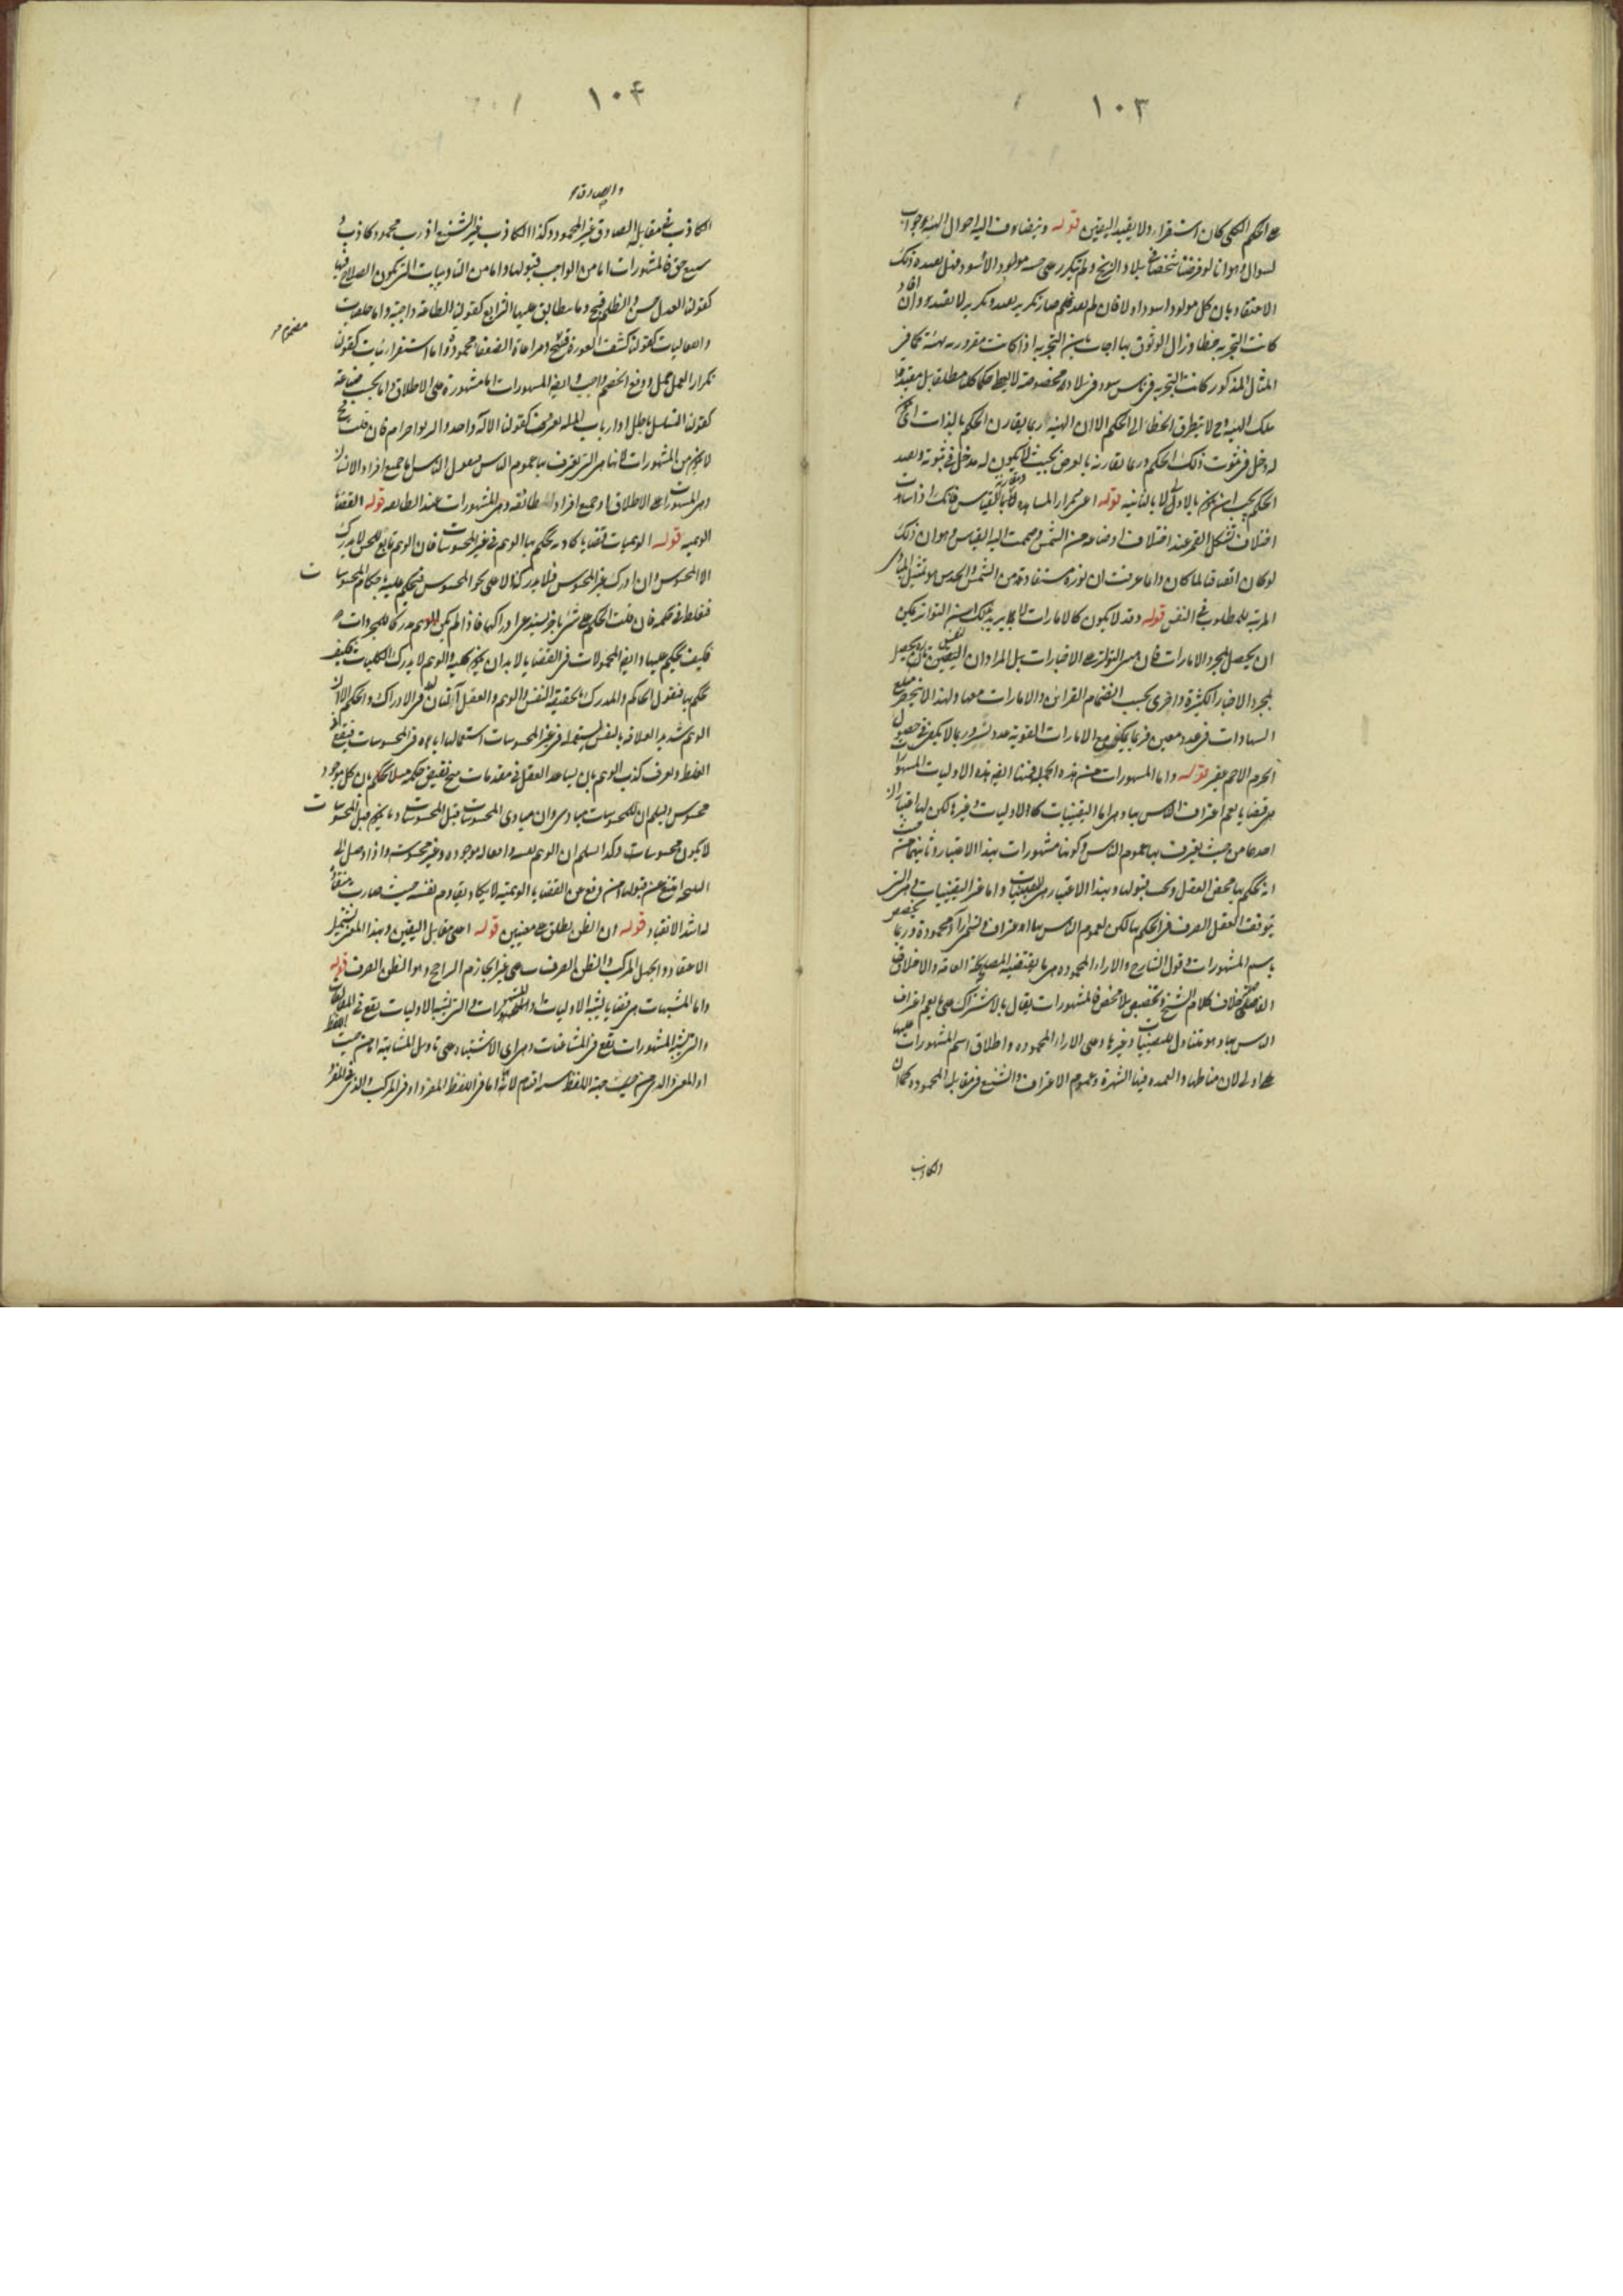 ١٠٣
على الحكم الكلى كان استقراء ولا يفيد اليقين قوله وينضاف اليه احوال الهيئة جواب
لسوال وهو انا لو فرضنا شخصا فى بلاد الزنج ولم يتكرر على حسه مولود الا اسود فهل يفيده ذلك
الاعتقاد بان كل مولود اسود او لا فان لم يفد فلم صار تكرير يفيد وتكرير لا يفيد وان افاد
كانت التجربة خطاء وزال الوثوق بها اجاب بان التجربة اذا كانت مقرونة بهيئة كما فى
المثال المذكور كانت التجربة فى ناس سود فى بلاد مخصوصة لا يعطى حكما كليا مطلقا بل مقيدا
بتلك الهيئة وح لا يتطرق الخطاء الى الحكم الا ان الهيئة ربما يقارن الحكم بالذات اى
له دخل فى ثبوت ذلك الحكم وربما تقارنه بالعرض بحيث لا يكون له مدخل فى ثبوته ويعيد
الحكم يجب ان يكون بالاولى لا بالثانية قوله اعنى تكرار المشاهدة ومقارنة القياس فانك اذا شاهدت
اختلاف تشكل القمر عند اختلاف اوضاعه من الشمس وضممت اليه القياس وهو ان ذلك
لو كان اتفاقيا لما كان دائما عرفت ان نوره مستفاد من الشمس والحدس هو تمثل المبادى
المرتبة للمطلوب فى النفس قوله وقد لا يكون كالامارات لا يريد بذلك ان التواتر يمكن
ان يحصل بمجرد الامارات فان مبنى التواتر على الاخبارات بل المراد ان اليقين تارة يحصل
بمجرد الاخبار الكثيرة واخرى بحسب انضمام القرائن والامارات معها ولهذا لا ينحصر مبلغ
الشهادات فى عدد معين فربما يكفى مع الامارات القوية عدد يسير وربما لا يكفى فى حصول
الجزم الا جم غفير قوله واما المشهورات من هذه الجملة فمنها ايضا هذه الاوليات المشهورات
هى قضايا يعم اعتراف الناس بها وهى اما اليقينيات كالاوليات وغيرها لكن لها اعتباران
احدهما من حيث يعترف بها عموم الناس وكونها مشهورات بهذا الاعتبار وثانيهما من حيث
انه يحكم بها محض العقل ويجب قبولها وبهذا الاعتبار هى اليقينيات واما غير اليقينيات وهى التى
يتوقف العقل الصرف فى الحكم بها لكن لعموم الناس بها اعتراف وتسمى آراء محمودة وربما يخصص
باسم المشهورات وقول الشارح والاراء المحمودة هى ما يقتضيه المصلحة العامة والاخلاق
الفاضلة خلاف كلام الشيخ وتخصيص بلا مخصص فالمشهورات يقال بالاشتراك على ما يعم اعتراف
الناس بها وهو متناول لليقينيات وغيرها وعلى الاراء المحموده واطلاق اسم المشهورات عليها
على اولى لان مناطها والعمده فيها الشهرة وعموم الاعتراف والشنيع فى مقابلة المحموده كما ان
والكاذب
١٠٤
والصادق
الكاذب فى مقابلة الصادق غير المحمود وكذا الكاذب غير الشنيع اذ رب محمود كاذب و
شنيع حق فالمشهورات اما من الواجب قبولها واما من التاديبات التى يكون الصلاح فيها
كقولنا العدل حسن والظلم قبيح وما يتطابق عليها الشرايع كقولنا الطاعة واجبة واما خلقيات
وانفعاليات كقولنا كشف العورة قبيح ومراعاة الضعفاء محمودة واما استقرائيات كقولنا
تكرار العمل ممل ودفع الخصم واجب وايضا المشهورات اما مشهورة على الاطلاق واما بحسب صناعة
كقولنا التسلسل باطل او ارباب الملة كقولنا الاله واحد والربوا حرام فان قلت ح
لا يكون من المشهورات لانها هى التى يعترف بها عموم الناس فنقول الناس اما جميع افراد الانسان
وهى المشهورات على الاطلاق او جميع افراد الطائفة وهى المشهورات عند الطائفة قوله القضايا
الوهمية قوله الوهميات قضايا كاذبة يحكم بها الوهم فى غير المحسوسات فان الوهم تابع للحس لا يدرك
الا المحسوس وان ادرك غير المحسوس فلا يدركه الا على نحو المحسوس فيحكم عليه باحكام المحسوسات
فيغلط فى حكمه فان قلت الحكم على شىء باخر يستدعى ادراكهما فاذا لم يكن الوهم مدركا للمجردات
فكيف يحكم عليها وايضا المحمولات فى القضايا لا بد ان يكون كلية والوهم لا يدرك الكليات فكيف
يحكم بها فنقول الحاكم والمدرك بالحقيقة النفس والوهم والعقل آلتان لها فى الادراك والحكم الا ان
الوهم شديد العلاقة بالنفس يستعمله فى غير المحسوسات استعمالها اياه فى المحسوسات فيقع
الغلط ويعرف كذب الوهم بان يساعد العقل فى مقدمات ينتج نقيض حكمه مثلا يحكم بان كل موجود
محسوس ويسلم ان للمحسوسات مبادى وان مبادى المحسوسات قبل المحسوسات وما يكون قبل المحسوسات
لا يكون محسوسات وكذا يسلم ان الوهم نفسه وافعاله موجوده وغير محسوسة واذا وصل الى
النتيجة امتنع عن قبولها
له اشد الانقياد قوله ان الظن يطلق على معنيين قوله احدهما مقابل اليقين وبهذا المعنى يشمل
الاعتقاد والجهل المركب والظن الصرف وعلى غير الجازم الراجح وهو الظن الصرف قوله
واما المشبهات هى قضايا يشبه الاوليات او المشهورات والتى يشبه الاوليات يقع فى المغالطات
والتى يشبه المشهورات يقع فى المشاغبات
او المعنى والذى من حيث جهة اللفظ ستة اقسام لانه اما فى اللفظ المفرد او فى المركب والذى فى المفرد